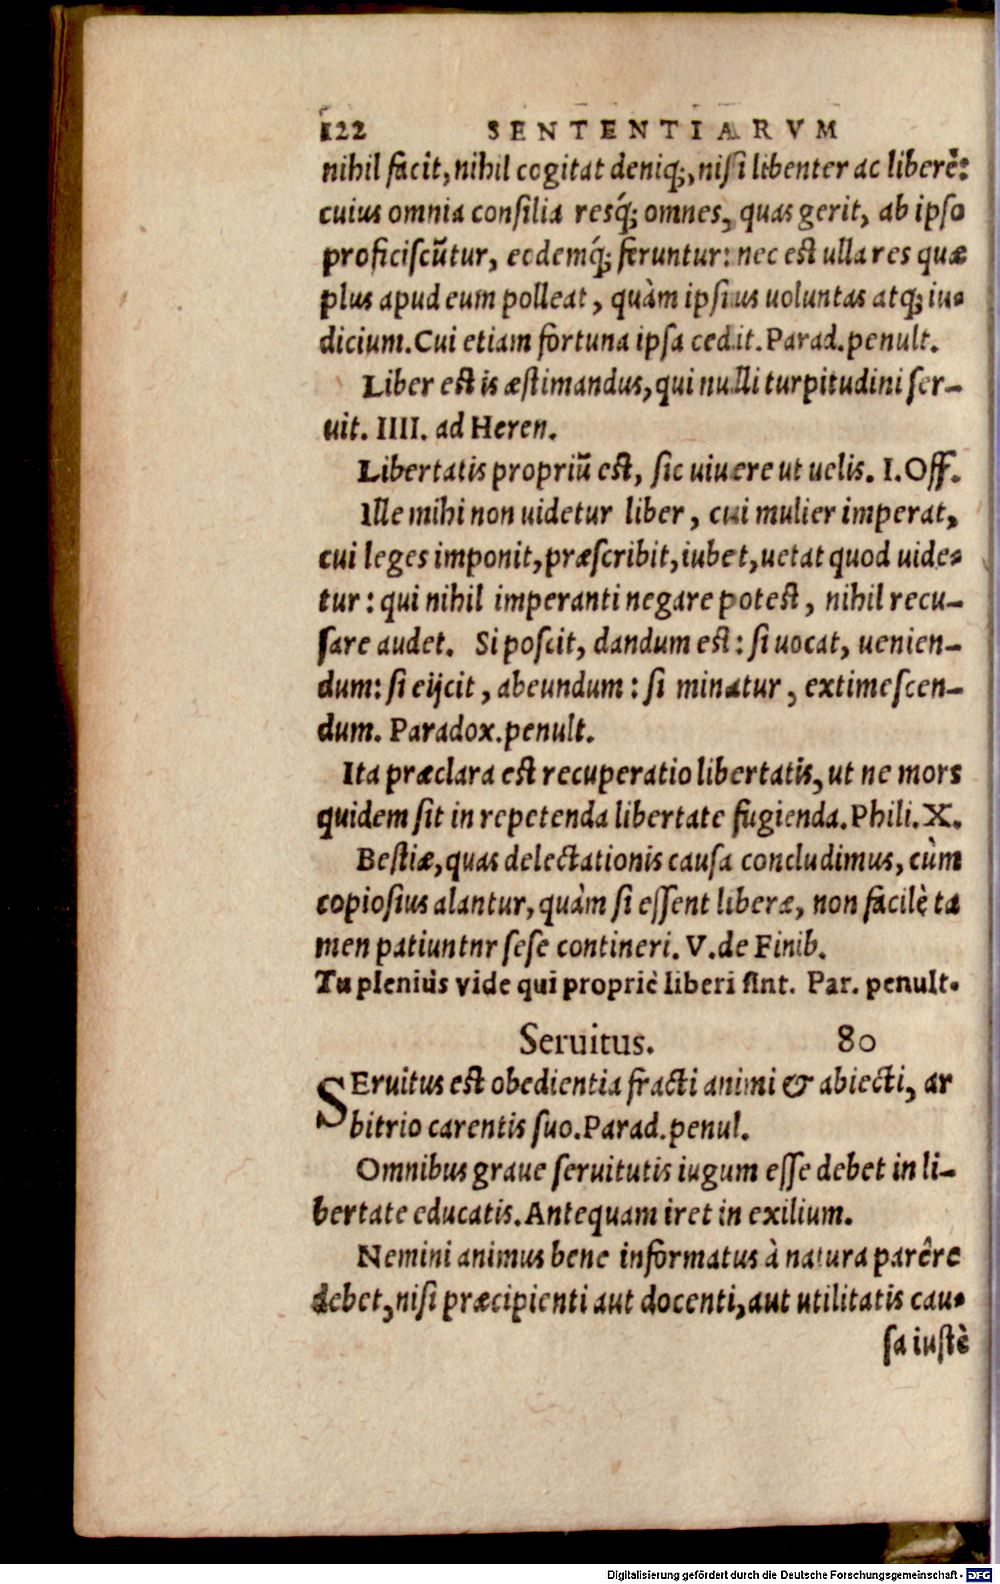 122 SENTENTIARVM
nihil facit, nihil cogitat deniq;, nisi libenter ac liberè:
cuius omnia consilia resq́; omnes, quas gerit, ab ipso
proficiscũtur, eodemq́; feruntur: nec est ulla res quæ
plus apud eum polleat, quàm ipsius uoluntas atq; iu-
dicium. Cui etiam fortuna ipsa cedit. Parad. penult.
Liber est is æstimandus, qui nulli turpitudini ser-
uit. IIII. ad Heren.
Libertatis propriũ est, sic uiuere ut uelis. I. Off.
Ille mihi non uidetur liber, cui mulier imperat,
cui leges imponit, præscribit, iubet, uetat quod uide-
tur: qui nihil imperanti negare potest, nihil recu-
sare audet. Si poscit, dandum est: si uocat, uenien-
dum: si eijcit, abeundum: si minatur, extimescen-
dum. Paradox. penult.
Ita præclara est recuperatio libertatis, ut ne mors
quidem sit in repetenda libertate fugienda. Phili. X.
Bestiæ, quas delectationis causa concludimus, cùm
copiosius alantur, quàm si essent liberæ, non facilè ta
men patiuntnr sese contineri. V. de Finib.
Tu pleniùs vide qui propriè liberi sint. Par. penult.
Seruitus. 80
SEruitus est obedientia fracti animi & abiecti, ar
bitrio carentis suo. Parad. penul.
Omnibus graue seruitutis iugum esse debet in li-
bertate educatis. Antequam iret in exilium.
Nemini animus bene informatus à natura parêre
debet, nisi præcipienti aut docenti, aut utilitatis cau-
sa iustè
Digitalisierung gefördert durch die Deutsche Forschungsgemeinschaft - DFG